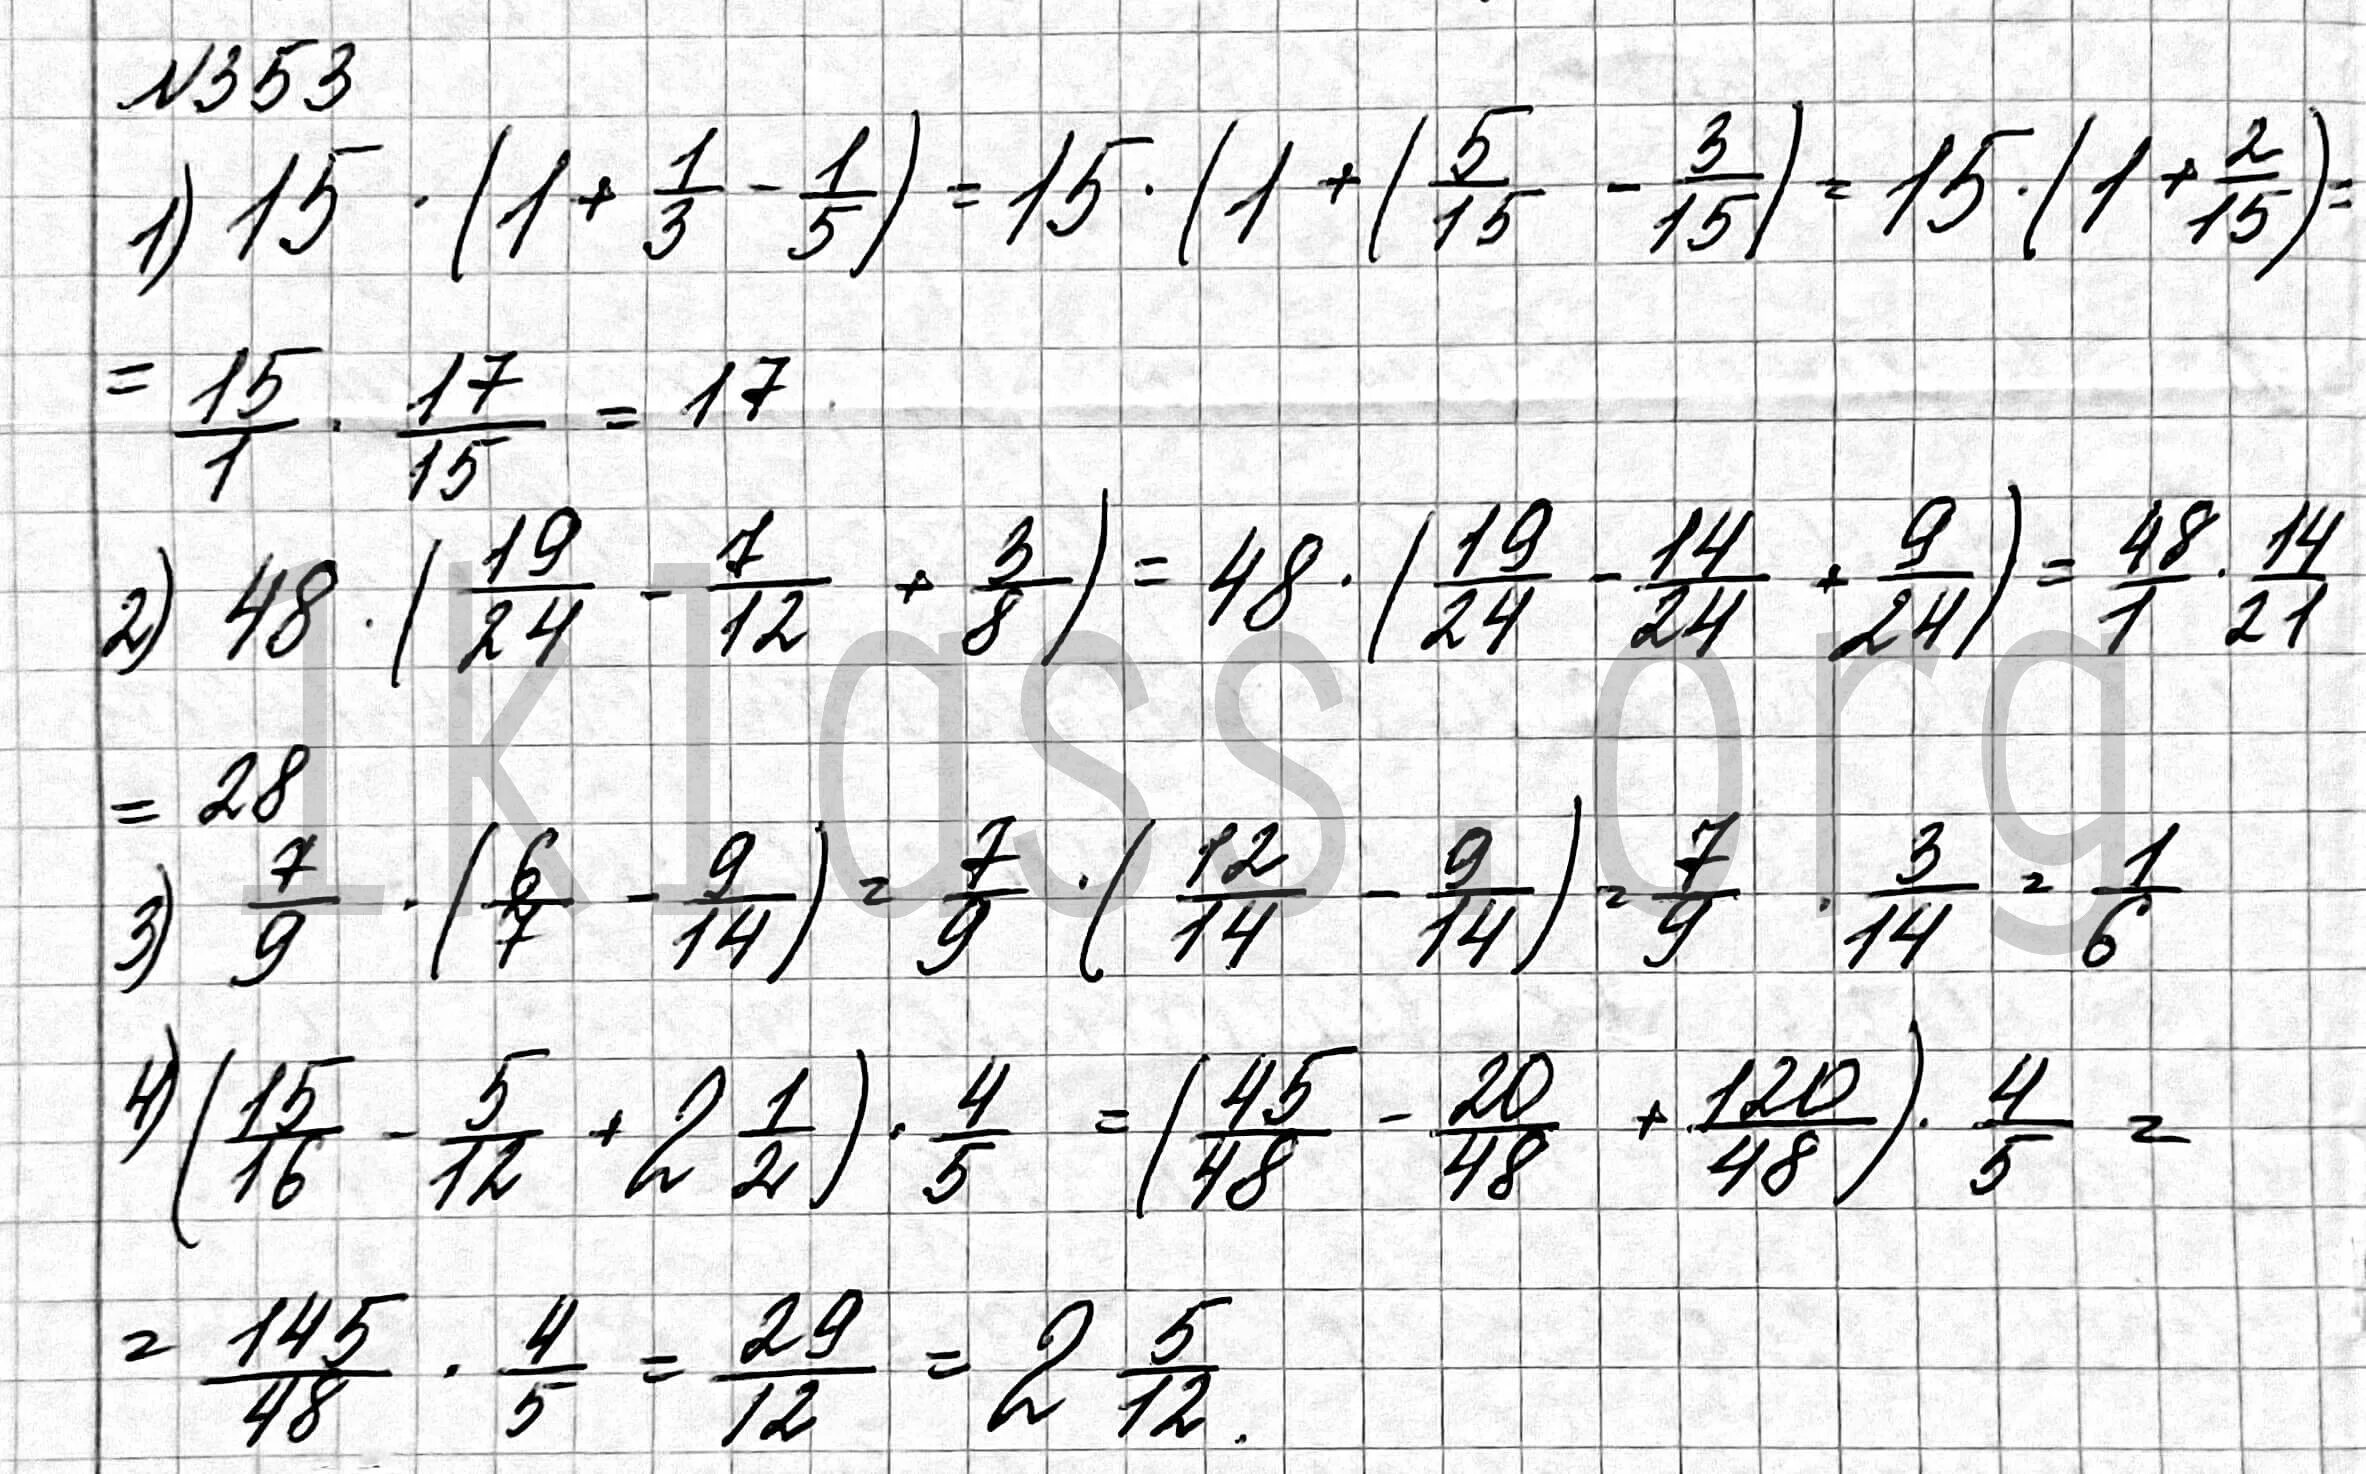 №353
1) 15 · (1 + 1/3 - 1/5) = 15 · (1 + (5/15 - 3/15) = 15 · (1 + 2/15) =
= 15/1 · 17/15 = 17
2) 48 · (19/24 - 7/12 + 3/8) = 48 · (19/24 - 14/24 + 9/24) = 48/1 · 14/21
= 28
3) 7/9 · (6/7 - 9/14) = 7/9 · (12/14 - 9/14) = 7/9 · 3/14 = 1/6
4) (15/16 - 5/12 + 2 1/2) · 4/5 = (45/48 - 20/48 + 120/48) · 4/5 =
= 145/48 · 4/5 = 29/12 = 2 5/12.
1klass.org